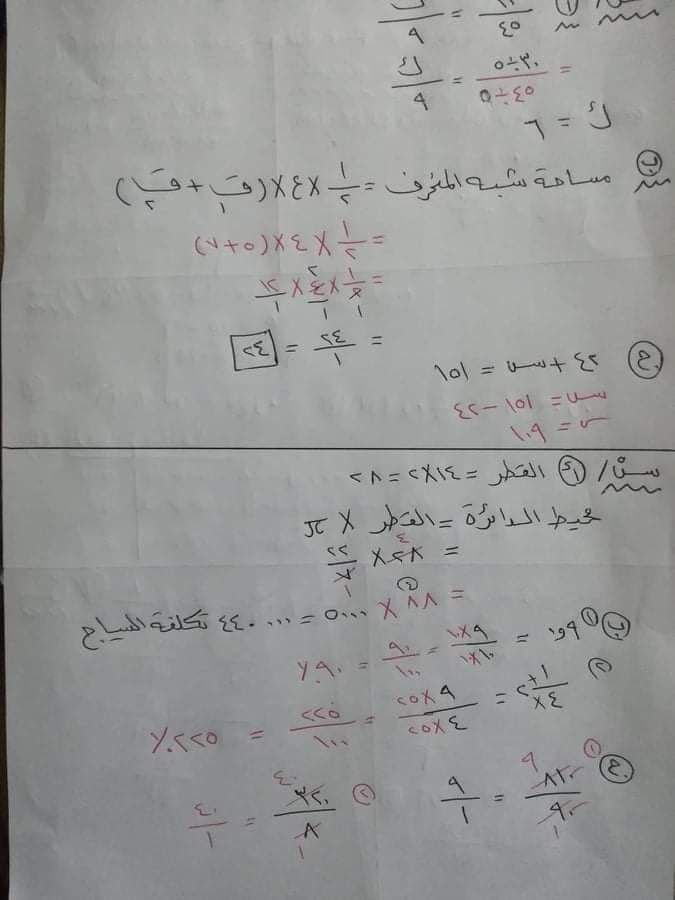 أ /٤٥ = ك/٩
= ٣٠÷٥/٤٥÷٥ = ك/٩
ك = ٦
ب مساحة شبه المنحرف = ١/٢ × ٤ × (ق١ + ق٢)
= ١/٢ × ٤ × (٥+٧)
= ١/٢ × ٤/١ × ١٢/١
= ٢٤/١ = ٢٤
ج ٤٢ + س = ١٥١
س = ١٥١ - ٤٢
س = ١٠٩
س٢/ أ القطر = ١٤×٢ = ٢٨
محيط الدائرة = القطر × π
= ٢٨ × ٢٢/٧
= ٨٨ × ٥٠٠٠ = ٤٤٠٠٠٠ تكلفة السياج
ب ١ ٠,٩ = ٩×١٠/١٠×١٠ = ٩٠/١٠٠ = ٩٠٪
٢ ٢ ١/٤ = ٩×٢٥/٤×٢٥ = ٢٢٥/١٠٠ = ٢٢٥٪
ج ١ ٨١٠/٩٠ = ٩/١ ٢ ٣٢٠/٨ = ٤٠/١